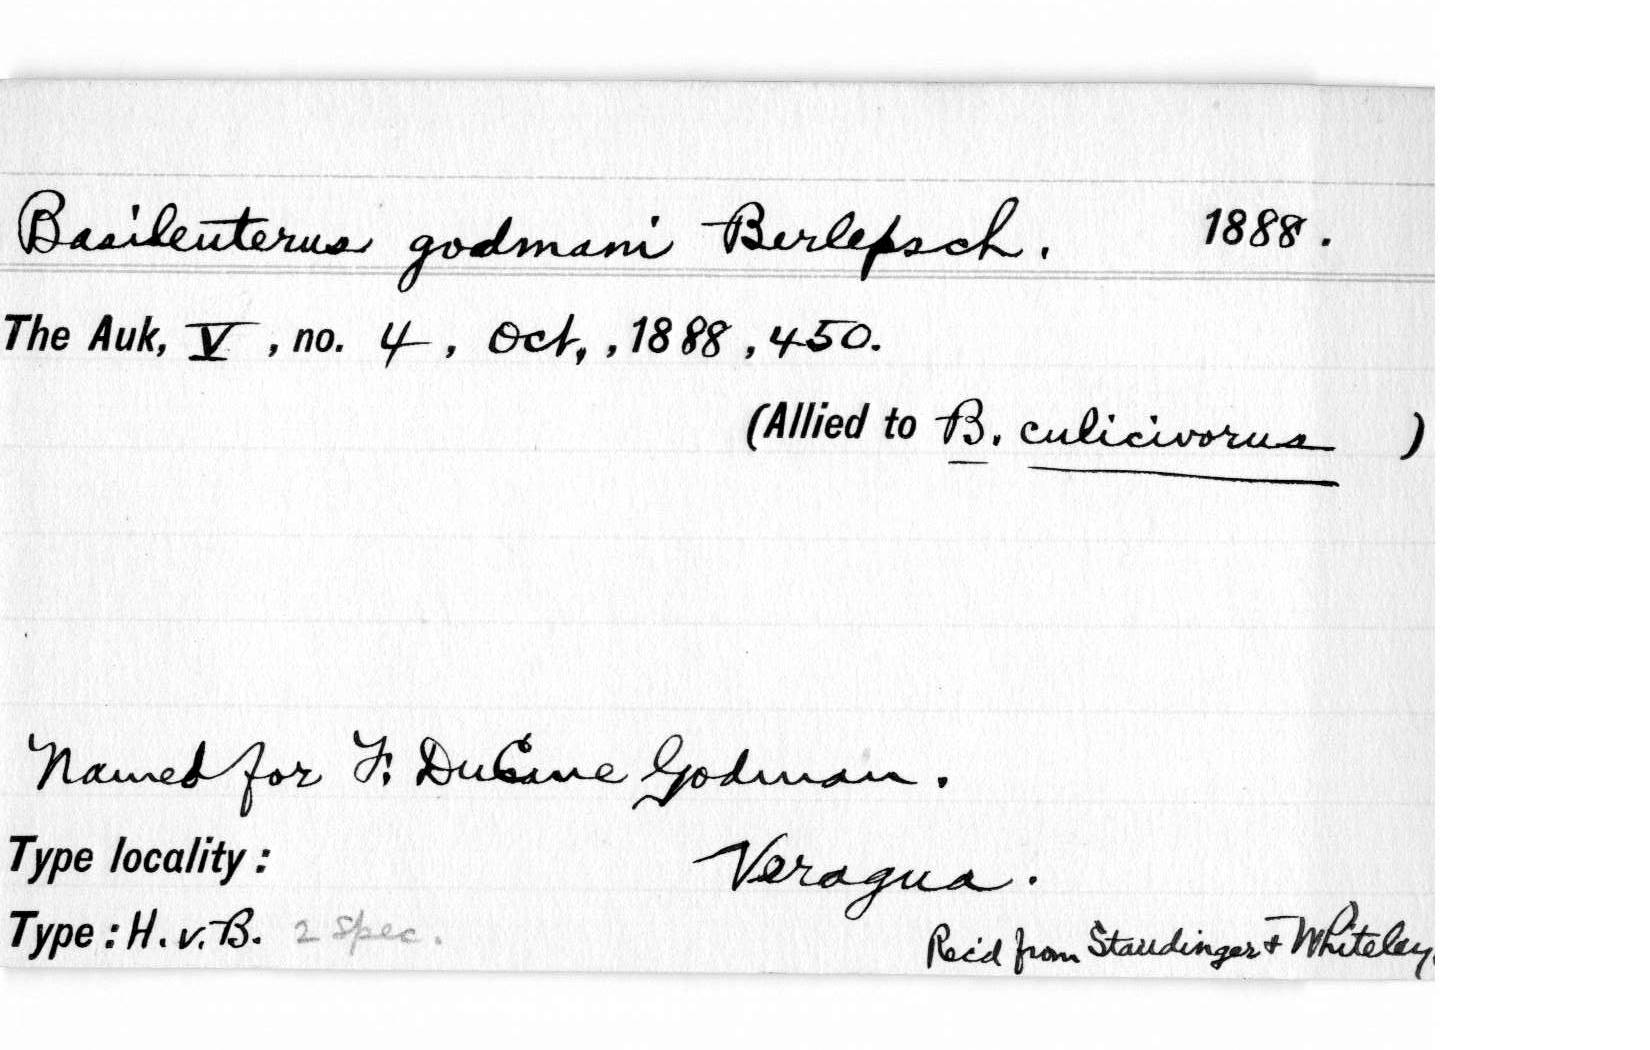 Basileuterus godmani Berlepsch. 1888.
The Auk, V, no. 4, Oct., 1888, 450.
(Allied to B. culicivorus )
Named for F. DuCane Godman.
Type locality: Veragua.
Type: H. v. B. 2 spec. Rec'd from Staudinger + Whiteley.